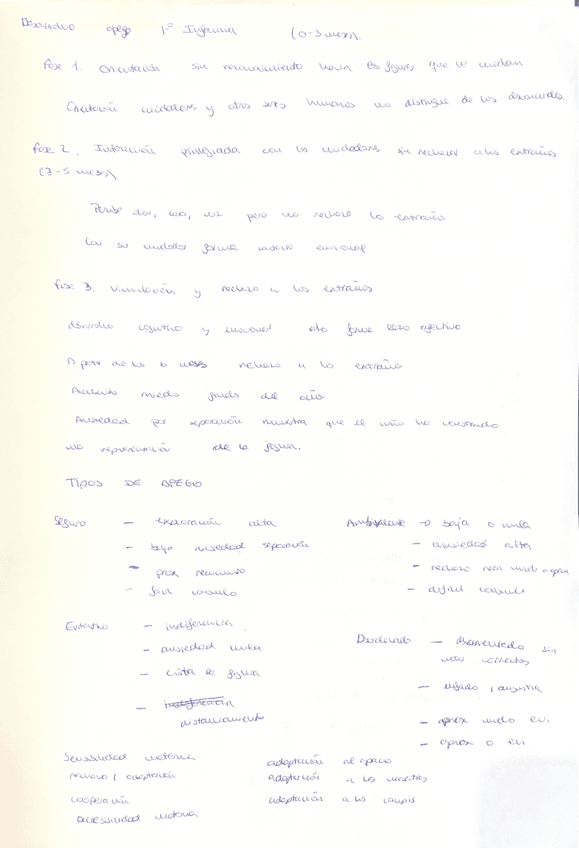 Desarrollo apego 1º Infancia (0-3 meses).
Fase 1. Orientación sin reconocimiento hacia las figuras que le cuidan
Orientación cuidadores y otros seres humanos no distingue de los desconocidos.
Fase 2. Interacción privilegiada con los cuidadores sin rechazar a los extraños
(3-5 meses)
Percibe olor, cara, voz pero no rechaza lo extraño
Con su cuidador forma emocional
Fase 3. Vinculación y rechazo a los extraños
desarrollo cognitivo y emocional forma lazo afectivo
A partir de los 6 meses rechazo a lo extraño
Aumento miedo final del año
Ansiedad por separación muestra que el niño ha construido
una representación de la figura.
TIPOS DE APEGO
Seguro - exploración alta
- baja ansiedad separación
- prox
- fácil consuelo
Ambivalente → baja o nula
- ansiedad alta
- rechazo o aprox
- difícil consuelo
Evitativo - indiferencia
- ansiedad nula
- evita la figura
- distanciamiento
- desorientado sin
- enfado / angustia
- aprox evi
- aprox o evi
Sensibilidad materna
rechazo / adaptación
cooperación
accesibilidad materna
adaptación al espacio
adaptación a los maestros
adaptación a los